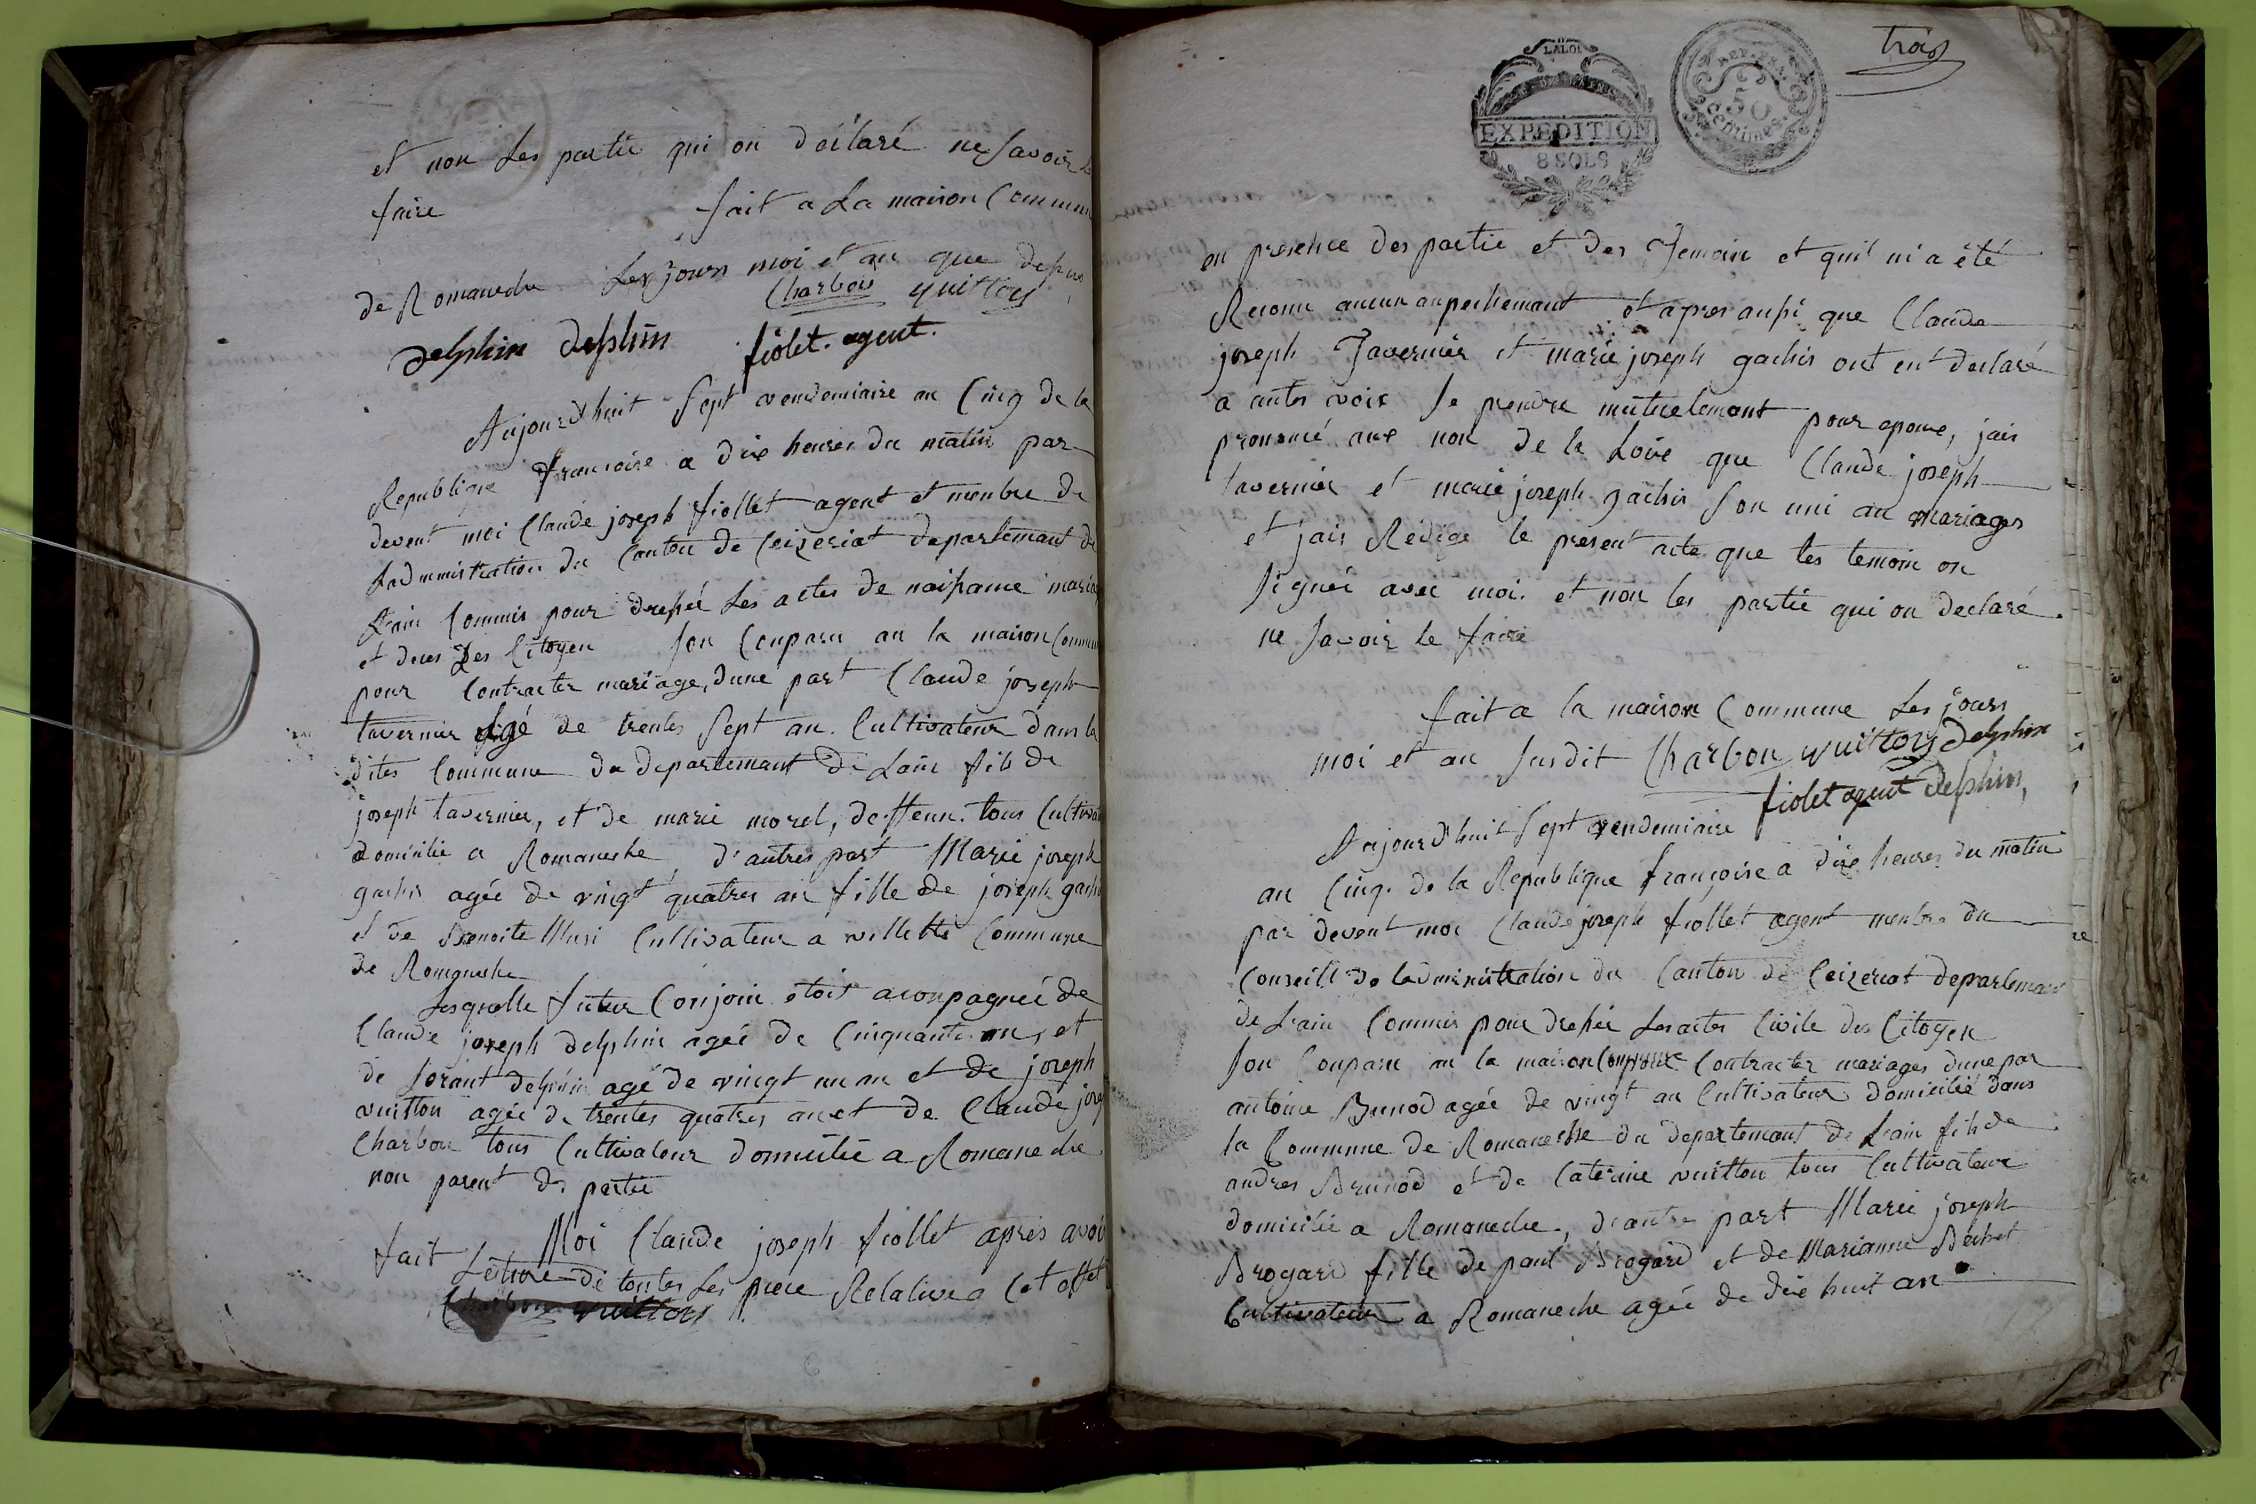 et non Les partie qui on déclaré ne savoir le
faire fait a La maison Commune
de Romaneche Les jours moi et an que dessus
Charbon vuitton
delphin delphin fiolet. agent.
Aujourd'huit sept vendemiaire an Cinq de la
Republique francoise a dixe heures du matin par
devent moi Claude joseph fiollet agent et menbre de
Ladmmistration du Canton de Ceizeriat departemant de
Lain Commis pour dressée Les actes de naissance mariage
et deces Des Citoyen son Conparu an la maison Commune
pour Contracter mariage, dune part Claude joseph
tavernier agé de trentes sept an. Cultivateur dans la
dites Commune du departemant de Lain fils de
joseph tavernier, et de marie morel, deffeun. tous Cultivat
domicilie a Romaneche d'autres part Marie joseph
gachis agée de vingt quatres an fille de joseph gachi
et de Benoite Musi Cultivateur a villette Commune
de Romaneche
Lesquelle futur Conjoin etoit aconpagnée de
Claude joseph delphin agée de Cinquante an, et
de Lorant delphin agé de vingt un an et de joseph
vuitton agée de trentes quatres an et de Claude jose
Charbon tous Cultivateur domicilié a Romaneche
non parent des partie
Moi Claude joseph fiollet aprés avoir
fait Lecture de toutes Les piece Relative a Cet effet
Charbon vuitton
trois
LA LOI
EXPEDITION
8 SOLS
REP. FRA.
50
centimes
en presence des partie et des Temoin et quil ni a été
Reconu aucun anpechemant et apres aussi que Claude
joseph Tavernier et marie joseph gachis ont ent declaré
a autes voix Se prendre mutuelemant pour epouse, jais
prononcé aux non de la Loixe que Claude joseph
tavernier et marie joseph gachis son uni an mariages
et jais Rédigé le present acte que les temoin on
signée avec moi. et non les partie qui on declaré
ne savoir le faire
fait a la maison Commune Les jours
moi et an susdit Charbon vuitton delphin
fiolet agent delphin,
Aujourd'huit sept vendemiaire
an Cinq. de la Republique françoise a dixe heures du matin
par devent moi Claude joseph fiollet agent menbre du
Conseill de ladministration du Canton de Ceizeriat departemant
de Lain Commis pour dressée Les actes Civile des Citoyen
son Conparu an la maison Commune Contracter mariages dune par
antoine Brunod agée de vingt an Cultivateur domicilié dans
la Commune de Romaneche du departemant de Lain fils de
andres Brunod et de Caterine vuitton tous Cultivateur
domicilié a Romaneche, d'autre part Marie joseph
Brogard fille de paul Brogard et de Marianne Bechet
Cultivateur a Romaneche agée de dixe huit an